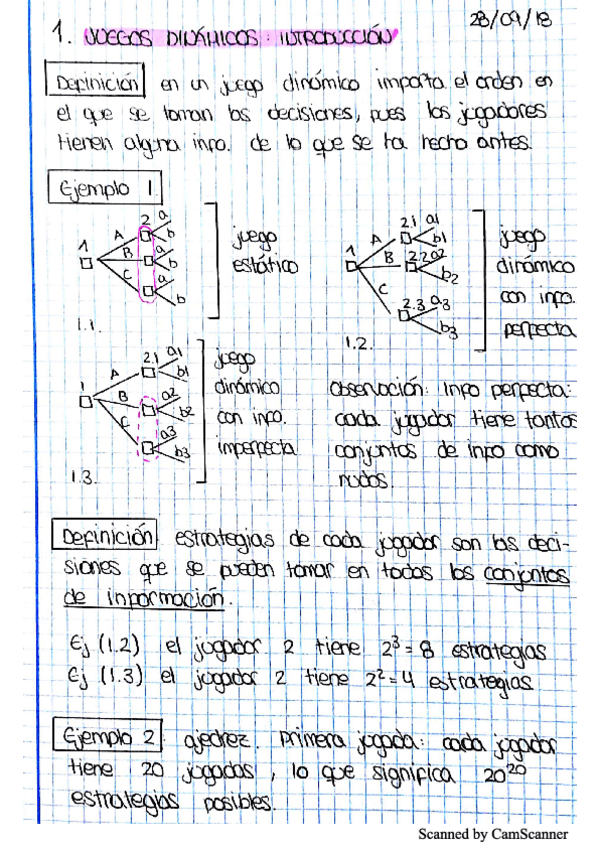 28/09/18
1. JUEGOS DINÁMICOS: INTRODUCCIÓN
Definición en un juego dinámico importa el orden en
el que se toman las decisiones, pues los jugadores
tienen alguna info. de lo que se ha hecho antes.
Ejemplo 1
1 A B C 2 a b a b a b
juego
estático
1.1.
1 A B C 2.1 a1 b1 2.2 a2 b2 2.3 a3 b3
juego
dinámico
con info.
perfecta
1.2.
1 A B C 2.1 a1 b1 a2 b2 a3 b3
juego
dinámico
con info.
imperfecta
1.3.
Observación: Info perfecta:
cada jugador tiene tantos
conjuntos de info como
nudos.
Definición estrategias de cada jugador son las deci-
siones que se pueden tomar en todos los conjuntos
de información.
Ej (1.2) el jugador 2 tiene 2³ = 8 estrategias
Ej (1.3) el jugador 2 tiene 2² = 4 estrategias
Ejemplo 2 ajedrez. Primera jugada: cada jugador
tiene 20 jugadas, lo que significa 20²⁰
estrategias posibles.
Scanned by CamScanner